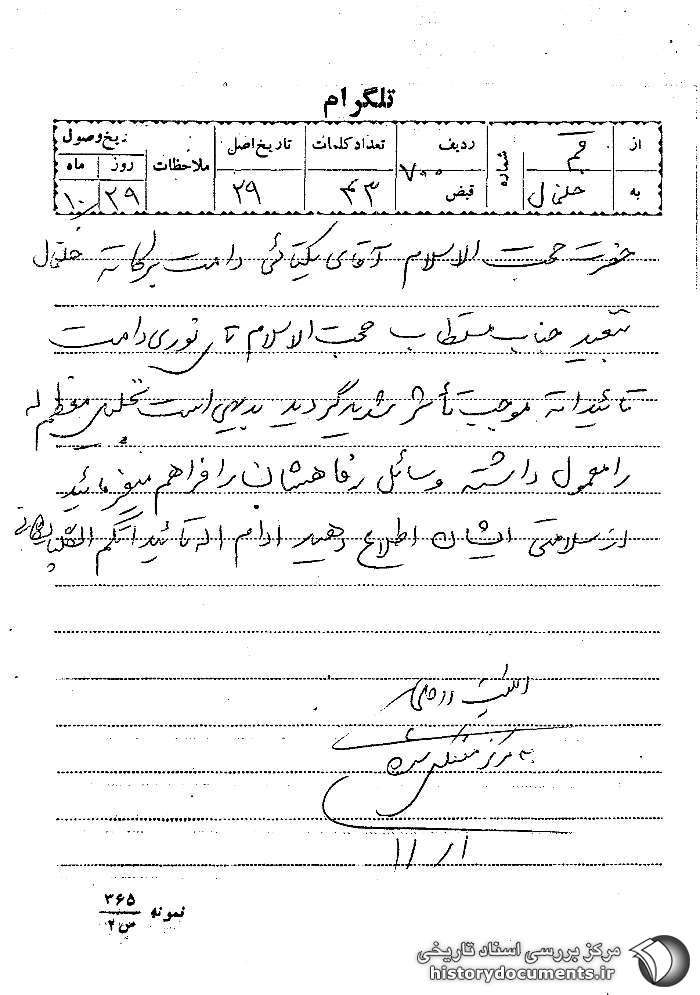 تلگرام
از قم شماره ردیف ۷۰۰ تعداد کلمات تاریخ اصل ملاحظات تاریخ وصول
روز ماه
به خلخال قبض ۴۳ ۲۹ ۲۹ ۱۰
حضرت حجت الاسلام آقای یکتائی دامت برکاته خلخال
تبعید جناب مستطاب حجت الاسلام آقای نوری دامت
تائیداته موجب تأثر شدید گردید بدیهی است تجلیل معظم له
را معمول داشته وسائل رفاهشان را فراهم میفرمائید
از سلامتی ایشان اطلاع دهید ادام اله تائیداتکم
به مرکز منعکس شد
۱/۱۱
نمونه ۳۶۵
س۲
مرکز بررسی اسناد تاریخی
historydocuments.ir